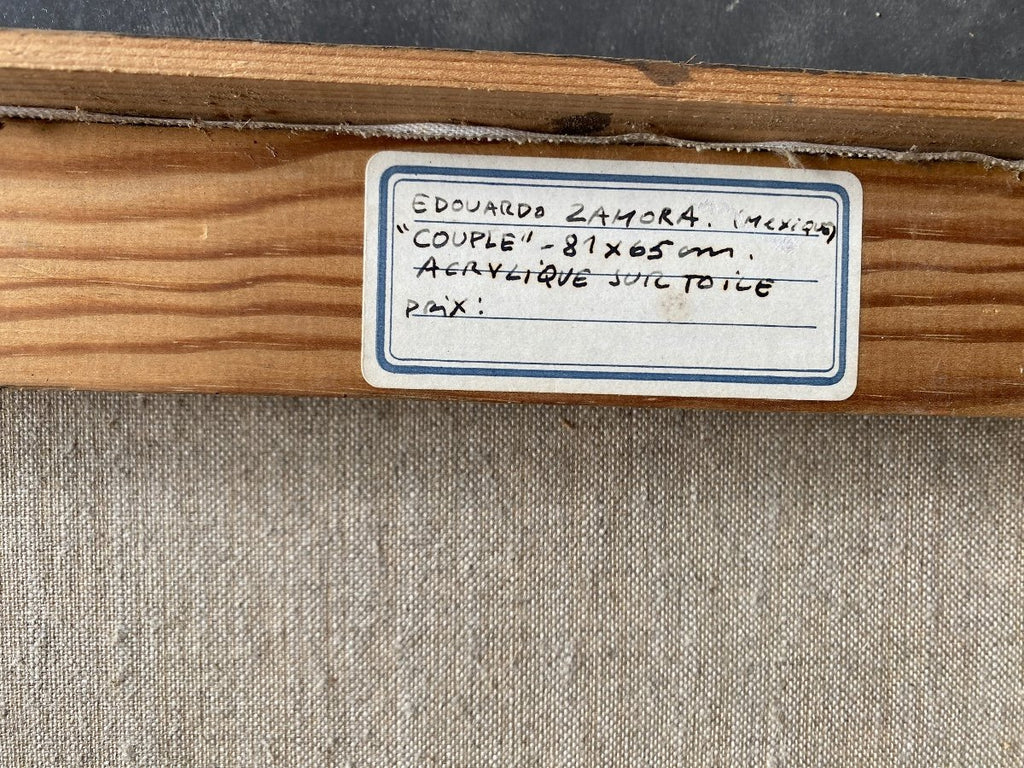 EDOUARDO ZAMORA. (MEXIQUE)
"COUPLE" - 81 x 65 cm.
ACRYLIQUE SUR TOILE
PRIX :